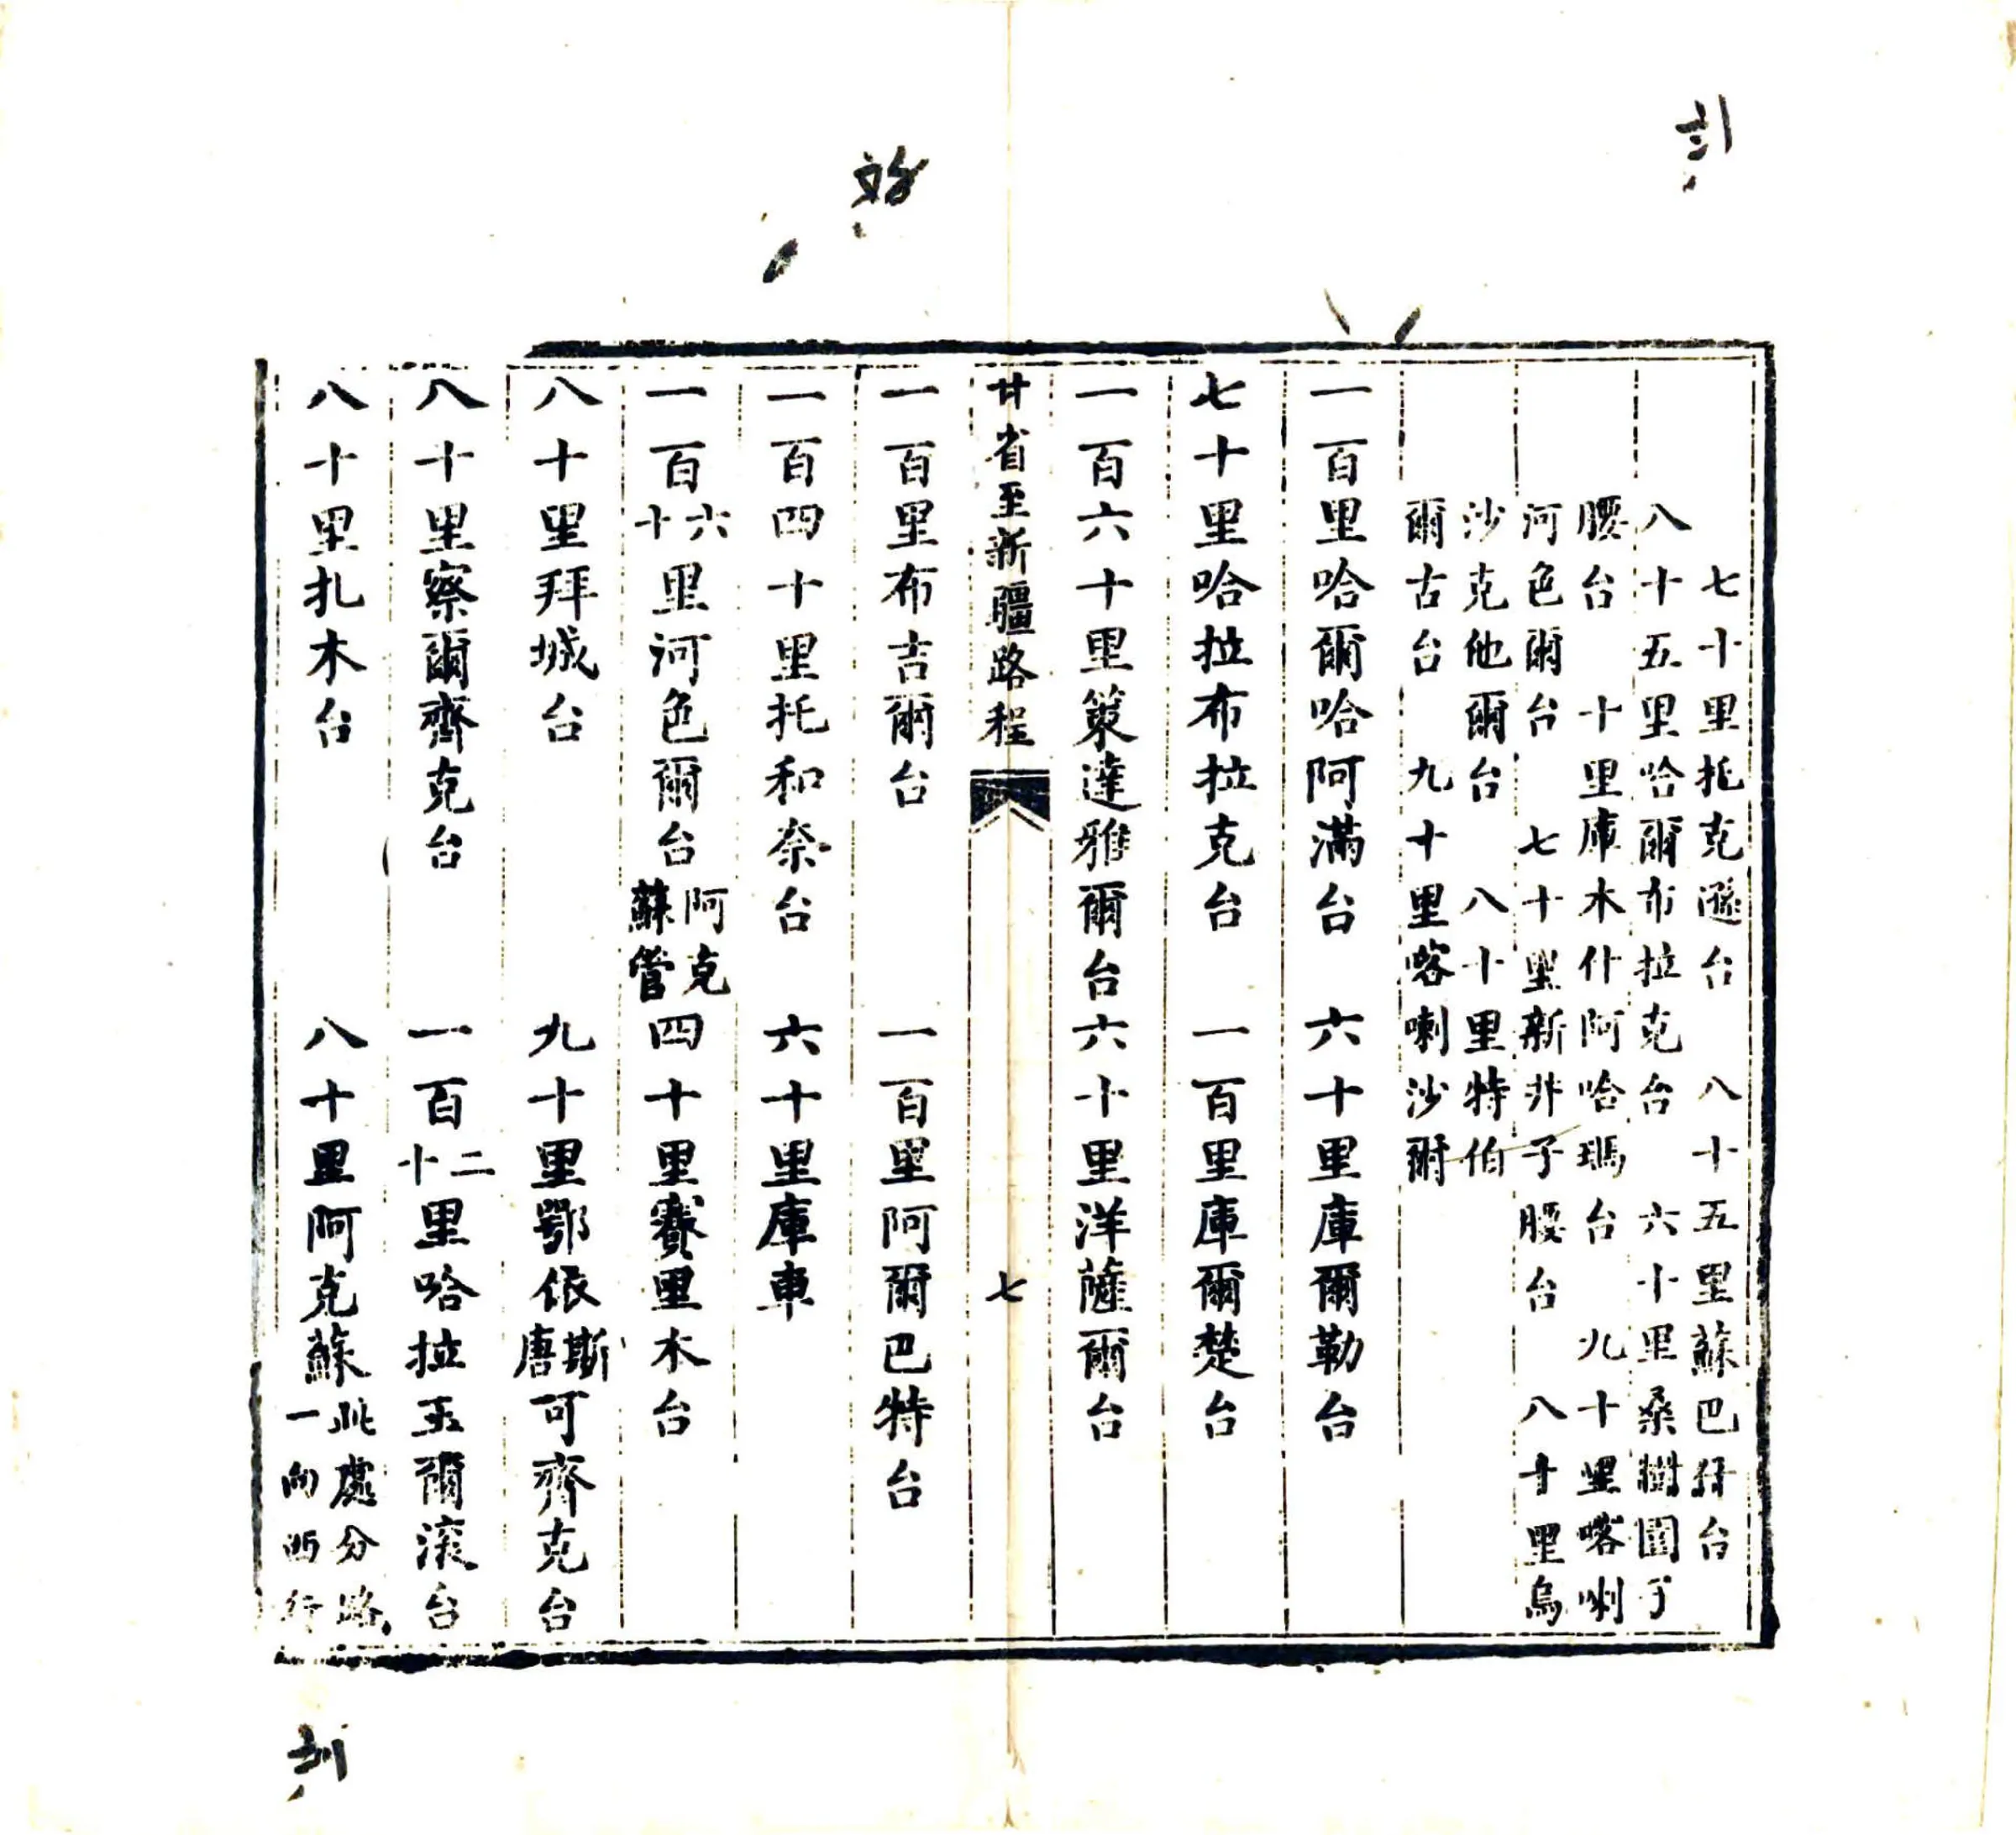 七十里托克遜台　八十五里蘇巴什台
八十五里哈爾布拉克台　六十里桑樹園子
腰台　十里庫木什阿哈瑪台　九十里喀喇
河色爾台　七十里新井子腰台　八十里烏
沙克他爾台　八十里特伯
爾古台　九十里喀喇沙爾
一百里哈爾哈阿滿台　六十里庫爾勒台
七十里哈拉布拉克台　一百里庫爾楚台
一百六十里策達雅爾台六十里洋薩爾台
甘省至新疆路程　七
一百里布吉爾台　一百里阿爾巴特台
一百四十里托和奈台　六十里庫車
一百六十里河色爾台阿克蘇管四十里賽里木台
八十里拜城台　九十里鄂依斯唐可齊克台
八十里察爾齊克台　一百二十里哈拉玉爾滚台
八十里扎木台　八十里阿克蘇此處分路一向西行